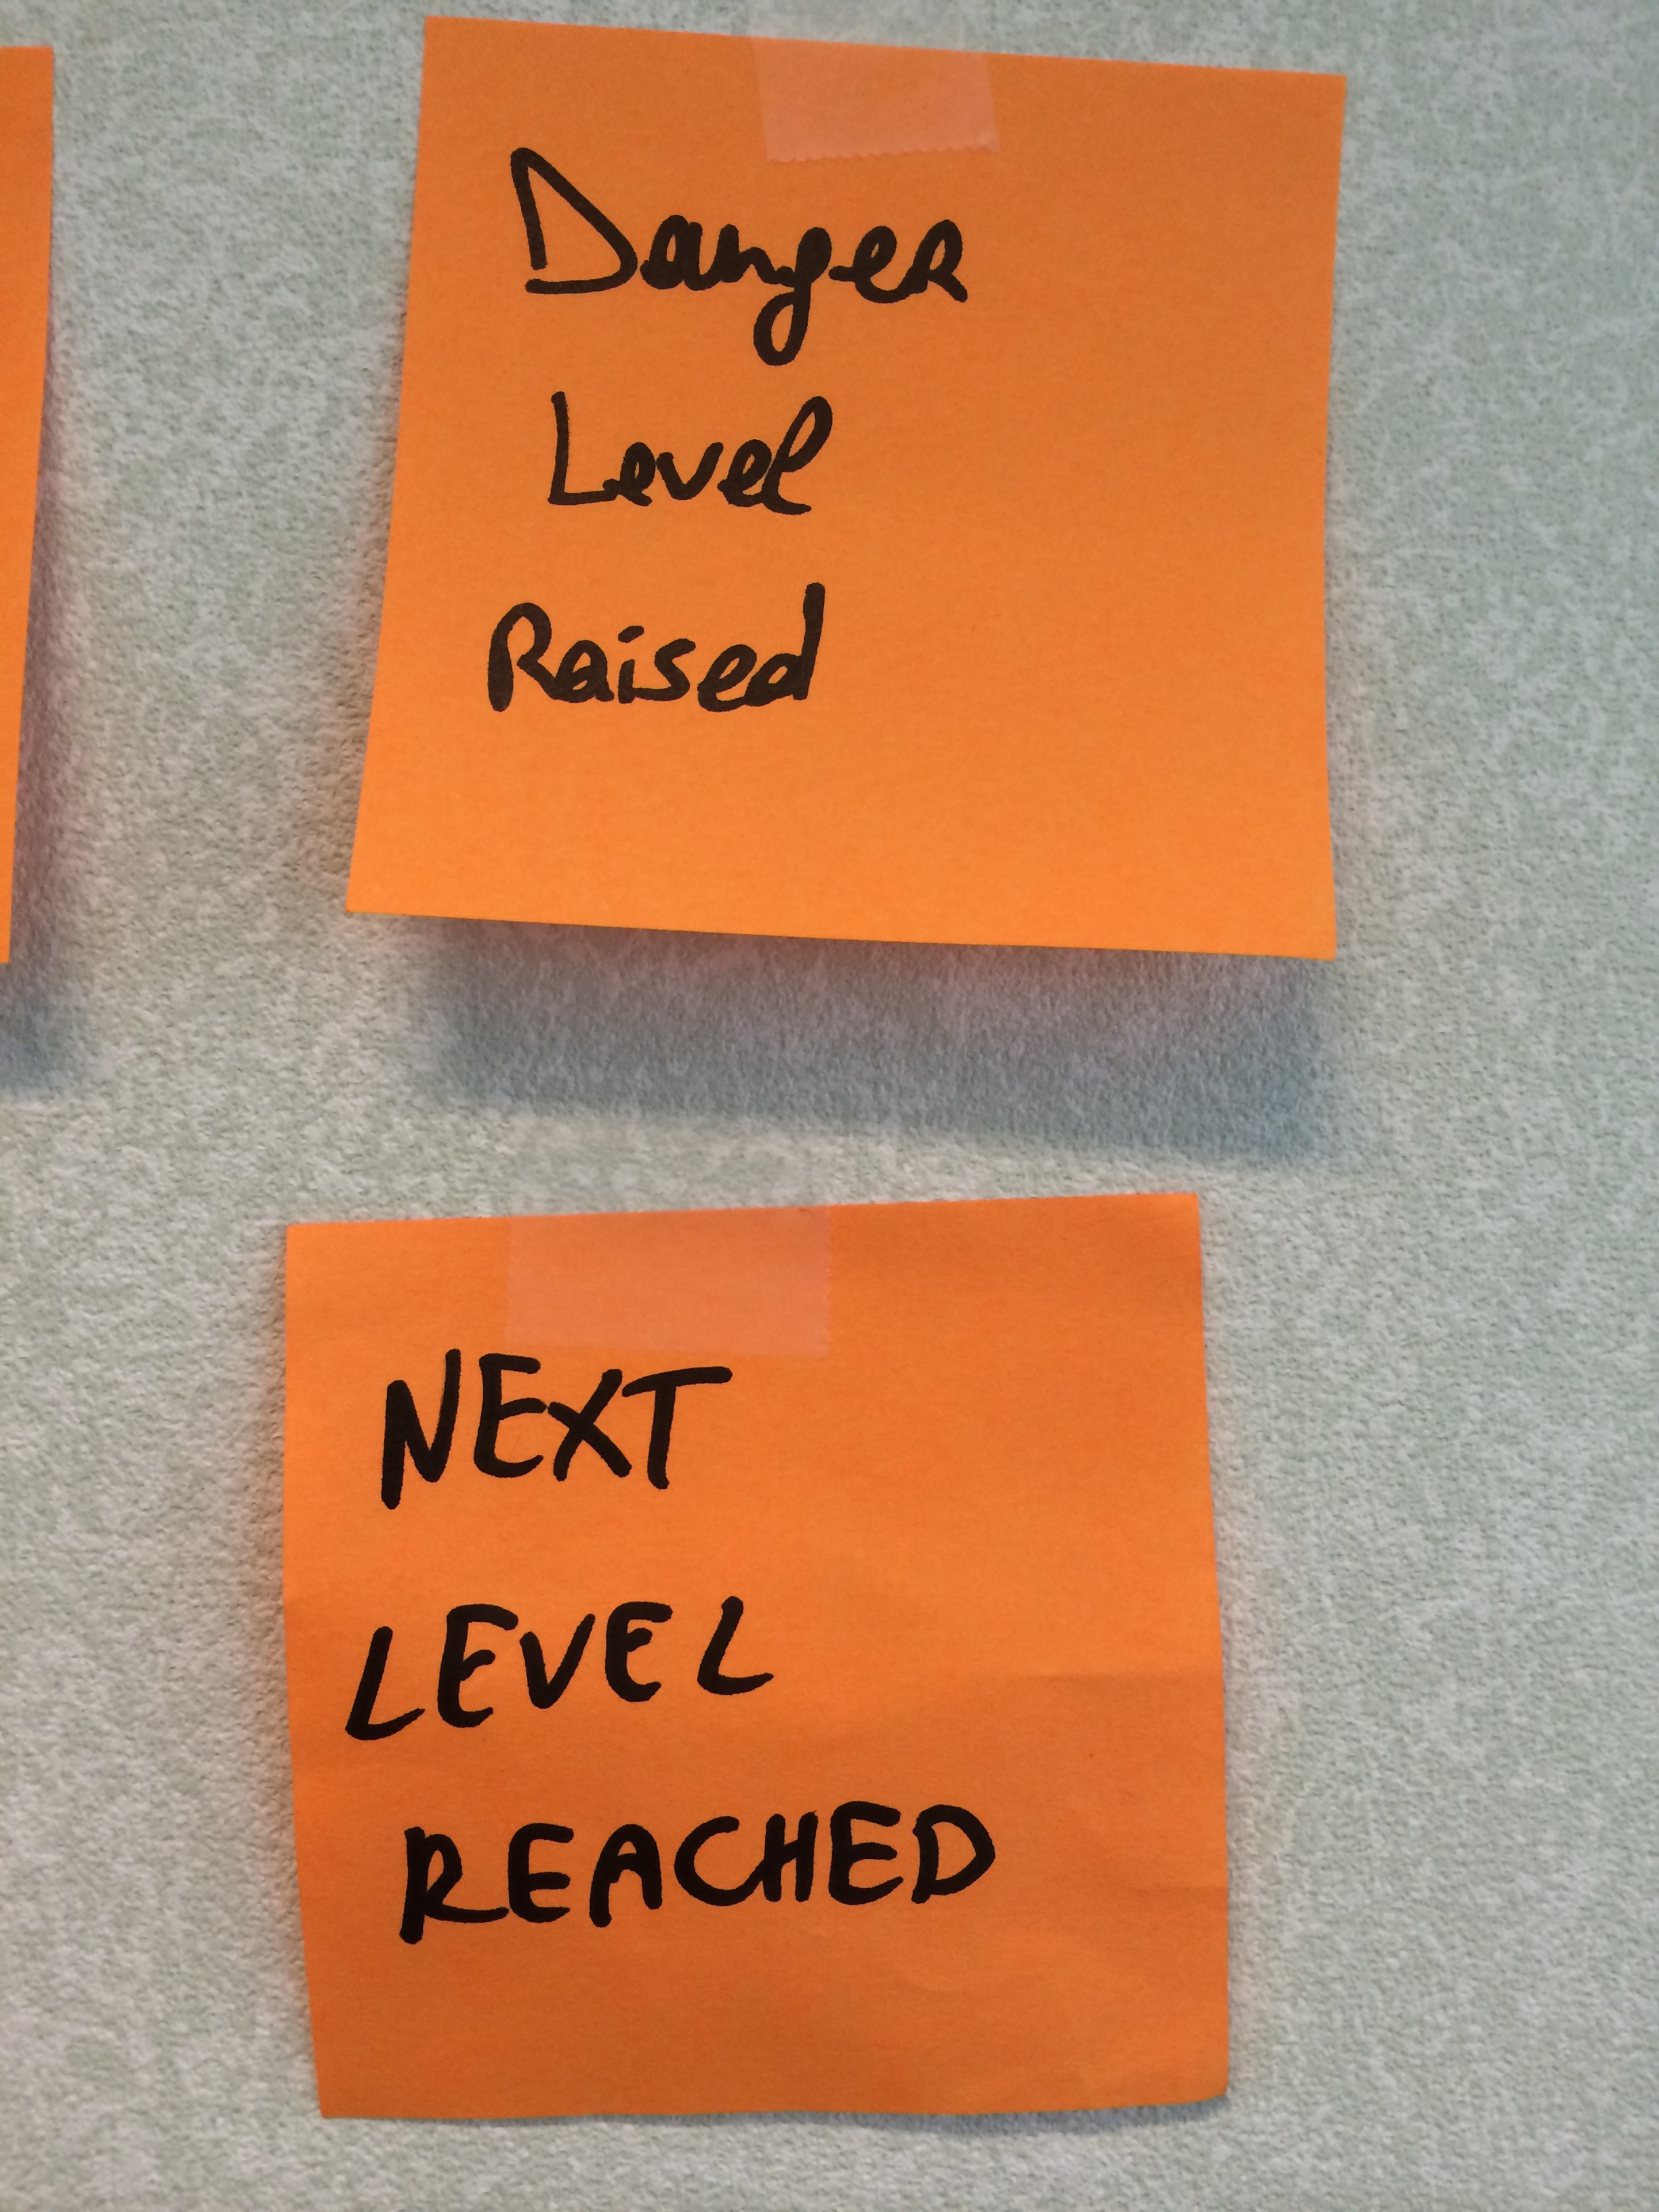 Danger
Level
Raised
NEXT
LEVEL
REACHED